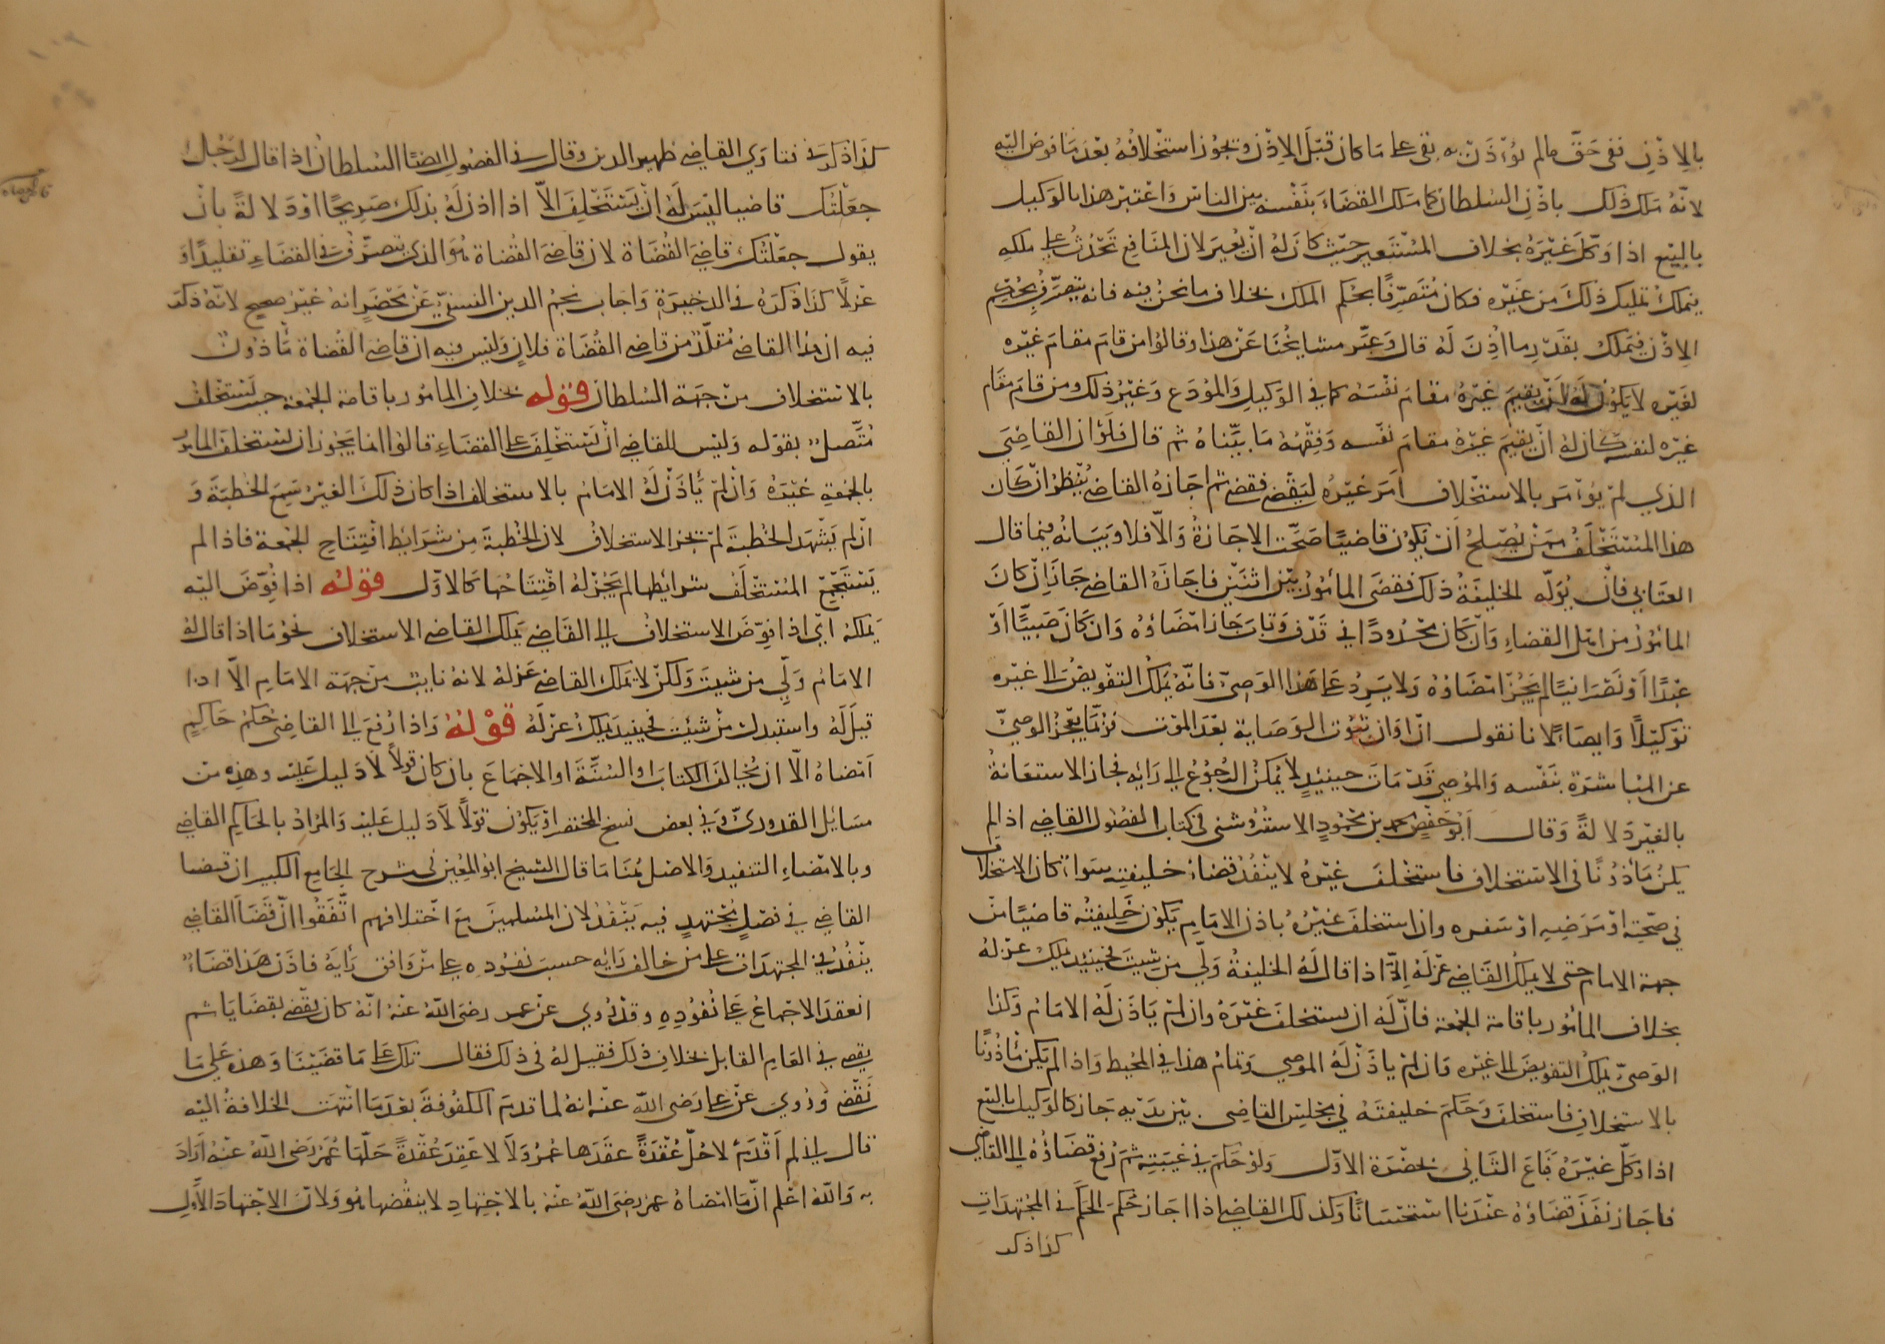 بالاذن ففي حق مالم يؤذن به بقي على ما كان قبل الاذن ويجوز استخلافه بعدما فوض اليه
لانه ملك ذلك باذن السلطان كما ملك القضاء بنفسه بين الناس واعتبر هذا بالوكيل
بالبيع اذا وكل غيره بخلاف المستعير حيث كان له ان يعير لان المنافع تحدث على ملكه
يملك تمليك ذلك من غيره فكان متصرفا بحكم الملك بخلاف ما نحن فيه فانه يتصرف بحكم
الاذن فيملك بقدر ما اذن له قال وعبر مشايخنا عن هذا وقالوا من قام مقام غيره
لغيره لا يكون له ان يقيم غيره مقام نفسه كما في الوكيل والمودع وغير ذلك ومن قام مقام
غيره لنفسه كان له ان يقيم غيره مقام نفسه وفقهه ما بيناه ثم قال فلو ان القاضي
الذي لم يؤمر بالاستخلاف امر غيره ليقضي فقضى ثم اجازه القاضي ينظر ان كان
هذا المستخلف ممن يصلح ان يكون قاضيا صحت الاجازة والا فلا وبيانه فيما قال
العتابي فان لم يوله الخليفة ذلك فقضى المأمور بين اثنين فاجازه القاضي جاز ان كان
المأمور من اهل القضاء وان كان محدودا في قذف وتاب جاز امضاؤه وان كان صبيا او
عبدا او نصرانيا لم يجز امضاؤه ولا يرد على هذا الوصي فانه يملك التفويض الى غيره
توكيلا وايصاء لانا نقول ان اوان ثبوت الوصاية بعد الموت وربما يعجز الوصي
عن المباشرة بنفسه والموصي قد مات حينئذ لا يمكن الرجوع الى رايه فجاز الاستعانة
بالغير دلالة وقال ابو حفص محمد بن محمود الاستروشني في كتاب الفصول القاضي اذا لم
يكن مأذونا في الاستخلاف فاستخلف غيره لا ينفذ قضاء خليفته سواء كان الاستخلاف
في صحته او مرضه او سفره وان استخلف غيره باذن الامام يكون خليفته قاضيا من
جهة الامام حتى لا يملك القاضي عزله الا اذا قال له الخليفة ولّي من شيت فحينئذ يملك عزله
بخلاف المأمور باقامة الجمعة فان له ان يستخلف غيره وان لم ياذن له الامام وكذا
الوصي يملك التفويض الى غيره وان لم ياذن له الموصي وتمام هذا في المحيط واذا لم يكن مأذونا
بالاستخلاف فاستخلف وحكم خليفته في مجلس القاضي بين يديه جاز كالوكيل بالبيع
اذا وكل غيره فباع الثاني بحضرة الاول ولو حكم في غيبته ثم رفع قضاؤه الى القاضي
فاجاز نفذ قضاؤه عندنا استحسانا وكذلك القاضي اذا اجاز حكم الحكم في المجتهدات
كذا ذكر
كذا ذكر في فتاوي القاضي ظهير الدين وقال في الفصول ايضا السلطان اذا قال لرجل
جعلتك قاضيا ليس له ان يستخلف الا اذا اذن له بذلك صريحا او دلالة بان
يقول جعلتك قاضي القضاة لان قاضي القضاة هو الذي يتصرف في القضاء تقليدا و
عزلا كذا ذكره في الذخيرة واجاب نجم الدين النسفي عن محضر انه غير صحيح لانه ذكر
فيه ان هذا القاضي مقلد من قاضي القضاة فلان وليس فيه ان قاضي القضاة مأذون
بالاستخلاف من جهة السلطان قوله بخلاف المأمور باقامة الجمعة حيث يستخلف
متصل بقوله وليس للقاضي ان يستخلف على القضاء قالوا انما يجوز ان يستخلف المأمور
بالجمعة غيره وان لم يأذن له الامام بالاستخلاف اذا كان ذلك الغير سمع الخطبة و
ان لم يشهد الخطبة لم يجز الاستخلاف لان الخطبة من شرايط افتتاح الجمعة فاذا لم
يستجمع المستخلف شرايطها لم يجز له افتتاحها كالاول قوله اذا فوض اليه
يملكه اي اذا فوض الاستخلاف الى القاضي يملك القاضي الاستخلاف نحو ما اذا قال له
الامام ولي من شيت ولكن لا يملك القاضي عزله لانه نايب من جهة الامام الا اذا
قيل له واستبدل من شيت فحينيذ يملك عزله قوله واذا رفع الى القاضي حكم حاكم
امضاه الا ان يخالف الكتاب او السنة او الاجماع بان كان قولا لا دليل عليه وهذه من
مسايل القدوري وفي بعض نسخ المختصر او يكون قولا لا دليل عليه والمراد بالحاكم القاضي
وبالامضاء التنفيذ والاصل هنا ما قال الشيخ ابو المعين في شرح الجامع الكبير ان قضا
القاضي في فصل مجتهد فيه ينفذ لان المسلمين مع اختلافهم اتفقوا ان قضا القاضي
ينفذ في المجتهدات على من خالف رايه حسب نفوذه على من وافق رايه فاذن هذا قضاء
انعقد الاجماع على نفوذه وقد روي عن عمر رضي الله عنه انه كان يقضي بقضايا ثم
يقضي في العام القابل بخلاف ذلك فقيل له في ذلك فقال تلك على ما قضينا وهذه على ما
نقضي وروي عن علي رضي الله عنه انه لما قدم الكوفة بعد ما انتهت الخلافة اليه
قال اني لم اقدم لاحل عقدة عقدها عمر ولا لاعقد عقدة حلها عمر رضي الله عنه اراد
به والله اعلم ان ما امضاه عمر رضي الله عنه بالاجتهاد لا ينقضها هو ولان الاجتهاد الاول